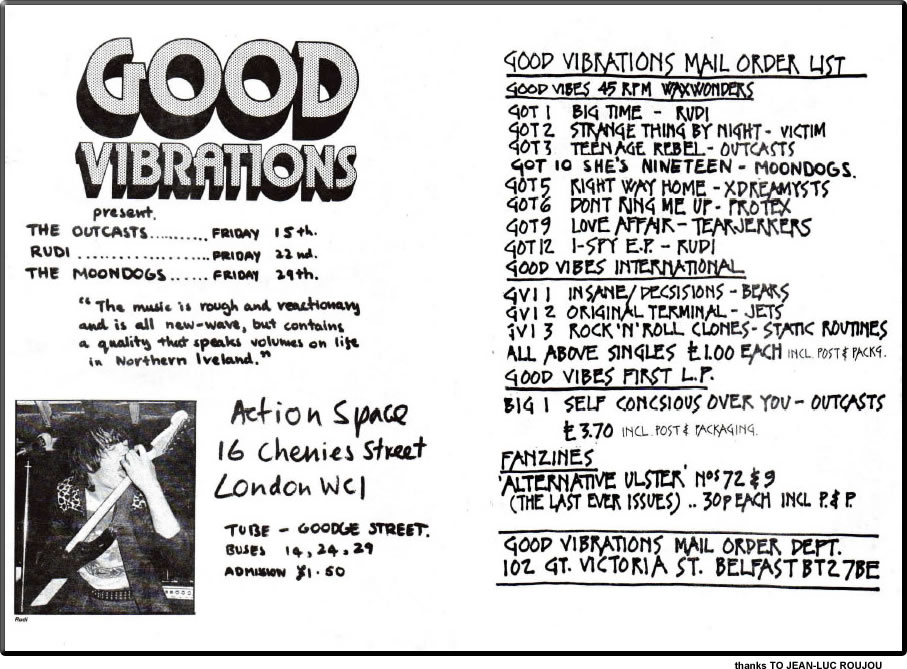 GOOD
VIBRATIONS
present.
THE OUTCASTS.......... FRIDAY 15th.
RUDI ..................... FRIDAY 22nd.
THE MOONDOGS...... FRIDAY 29th.
"The music is rough and reactionary
and is all new-wave, but contains
a quality that speaks volumes on life
in Northern Ireland."
Action Space
16 Chenies Street
London WC1
TUBE - GOODGE STREET.
BUSES 14, 24, 29
ADMISSION £1.50
Rudi
GOOD VIBRATIONS MAIL ORDER LIST
GOOD VIBES 45 RPM WAXWONDERS
GOT 1 BIG TIME - RUDI
GOT 2 STRANGE THING BY NIGHT - VICTIM
GOT 3 TEENAGE REBEL - OUTCASTS
GOT 10 SHE'S NINETEEN - MOONDOGS.
GOT 5 RIGHT WAY HOME - XDREAMYSTS
GOT 6 DONT RING ME UP - PROTEX
GOT 9 LOVE AFFAIR - TEARJERKERS
GOT 12 I-SPY E.P. - RUDI
GOOD VIBES INTERNATIONAL
GVI 1 INSANE/DECSISIONS - BEARS
GVI 2 ORIGINAL TERMINAL - JETS
GVI 3 ROCK'N'ROLL CLONES - STATIC ROUTINES
ALL ABOVE SINGLES £1.00 EACH INCL. POST & PACKG.
GOOD VIBES FIRST L.P.
BIG 1 SELF CONCSIOUS OVER YOU - OUTCASTS
£3.70 INCL. POST & PACKAGING.
FANZINES
'ALTERNATIVE ULSTER' Nos 72 & 9
(THE LAST EVER ISSUES) .. 30p EACH INCL P. & P.
GOOD VIBRATIONS MAIL ORDER DEPT.
102 GT. VICTORIA ST. BELFAST BT2 7BE
thanks TO JEAN-LUC ROUJOU